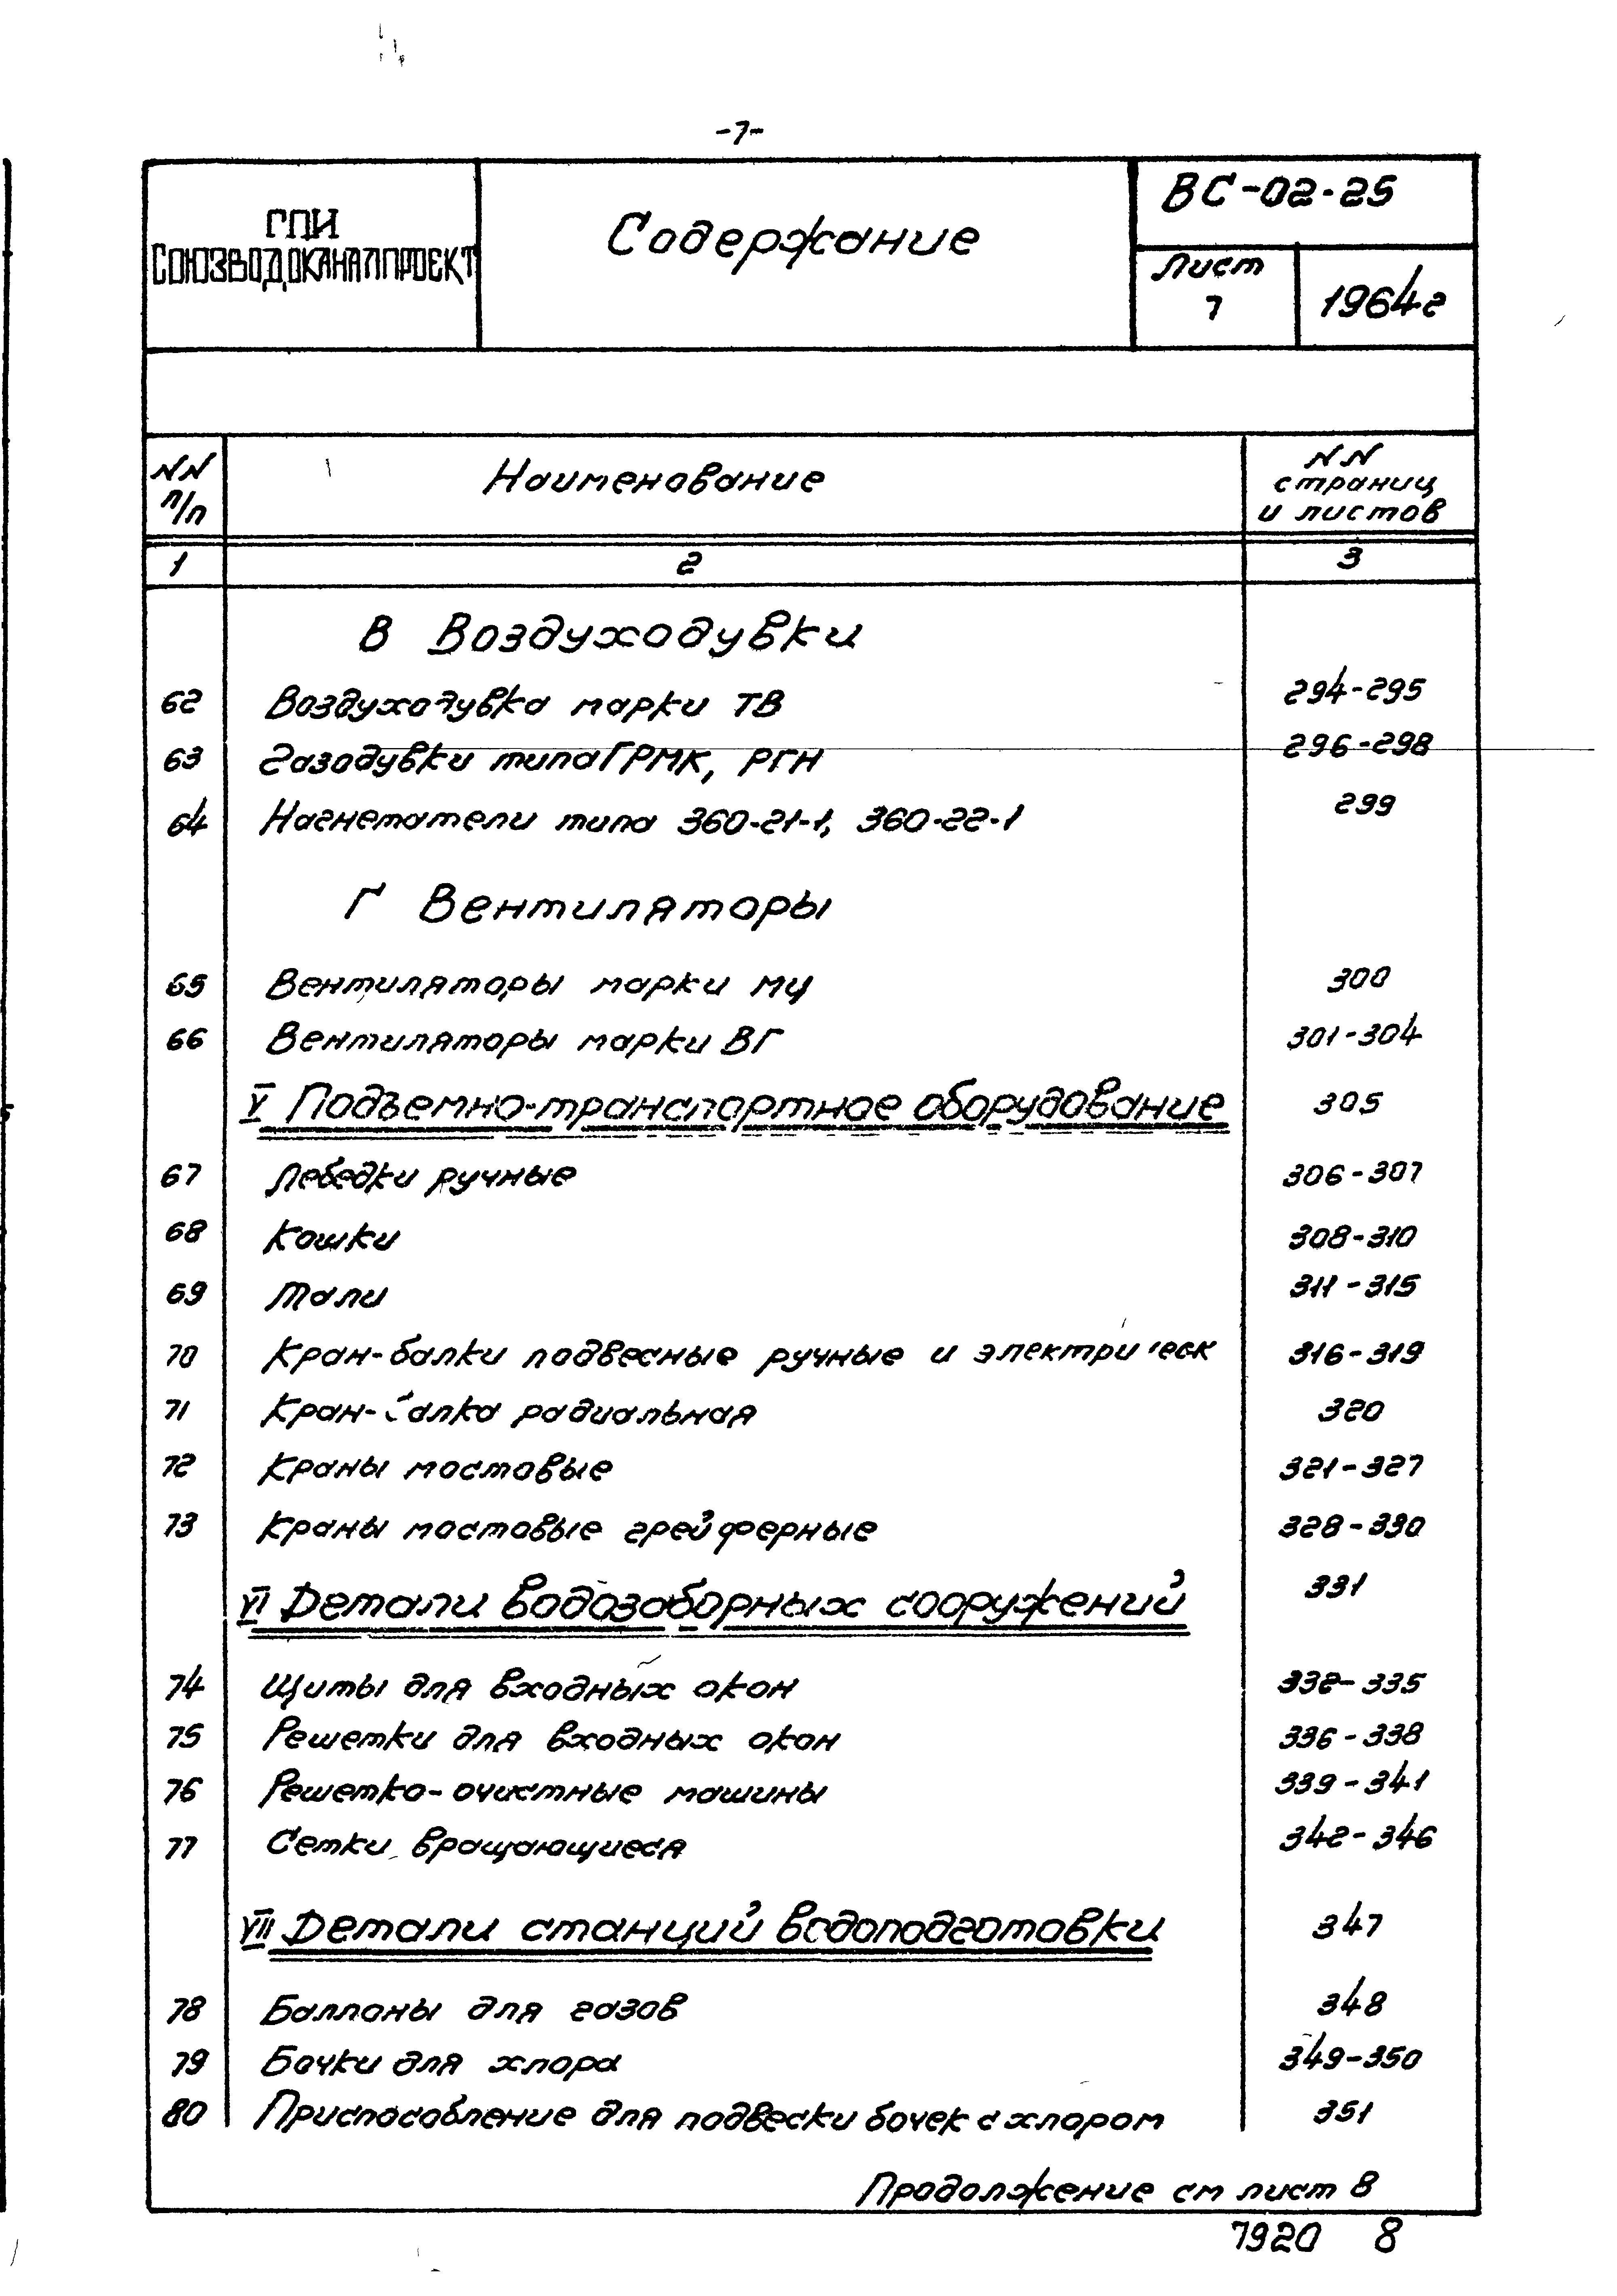 -7-
ГПИ
СОЮЗВОДОКАНАЛПРОЕКТ
Содержание
ВС-02-25
Лист
7
1964г
NN
п/п
Наименование
NN
страниц
и листов
1 2 3
В Воздуходувки
62 Воздуходувка марки ТВ 294-295
63 Газодувки типа ГРМК, РГН 296-298
64 Нагнетатели типа 360-21-1, 360-22-1 299
Г Вентиляторы
65 Вентиляторы марки МЦ 300
66 Вентиляторы марки ВГ 301-304
V Подъемно-транспортное оборудование 305
67 Лебедки ручные 306-307
68 Кошки 308-310
69 Тали 311-315
70 Кран-балки подвесные ручные и электрическ 316-319
71 Кран-балка радиальная 320
72 Краны мостовые 321-327
73 Краны мостовые грейферные 328-330
VI Детали водозаборных сооружений 331
74 Щиты для входных окон 332-335
75 Решетки для входных окон 336-338
76 Решетко-очистные машины 339-341
77 Сетки вращающиеся 342-346
VII Детали станций водоподготовки 347
78 Баллоны для газов 348
79 Бочки для хлора 349-350
80 Приспособление для подвески бочек с хлором 351
Продолжение см лист 8
7920 8